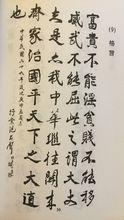 (9)
富貴不能淫貧賤不能移
威武不能屈此之謂大丈
夫是我中華繼往開來
齊家治國平天下之大道
也
中華民國六十九年